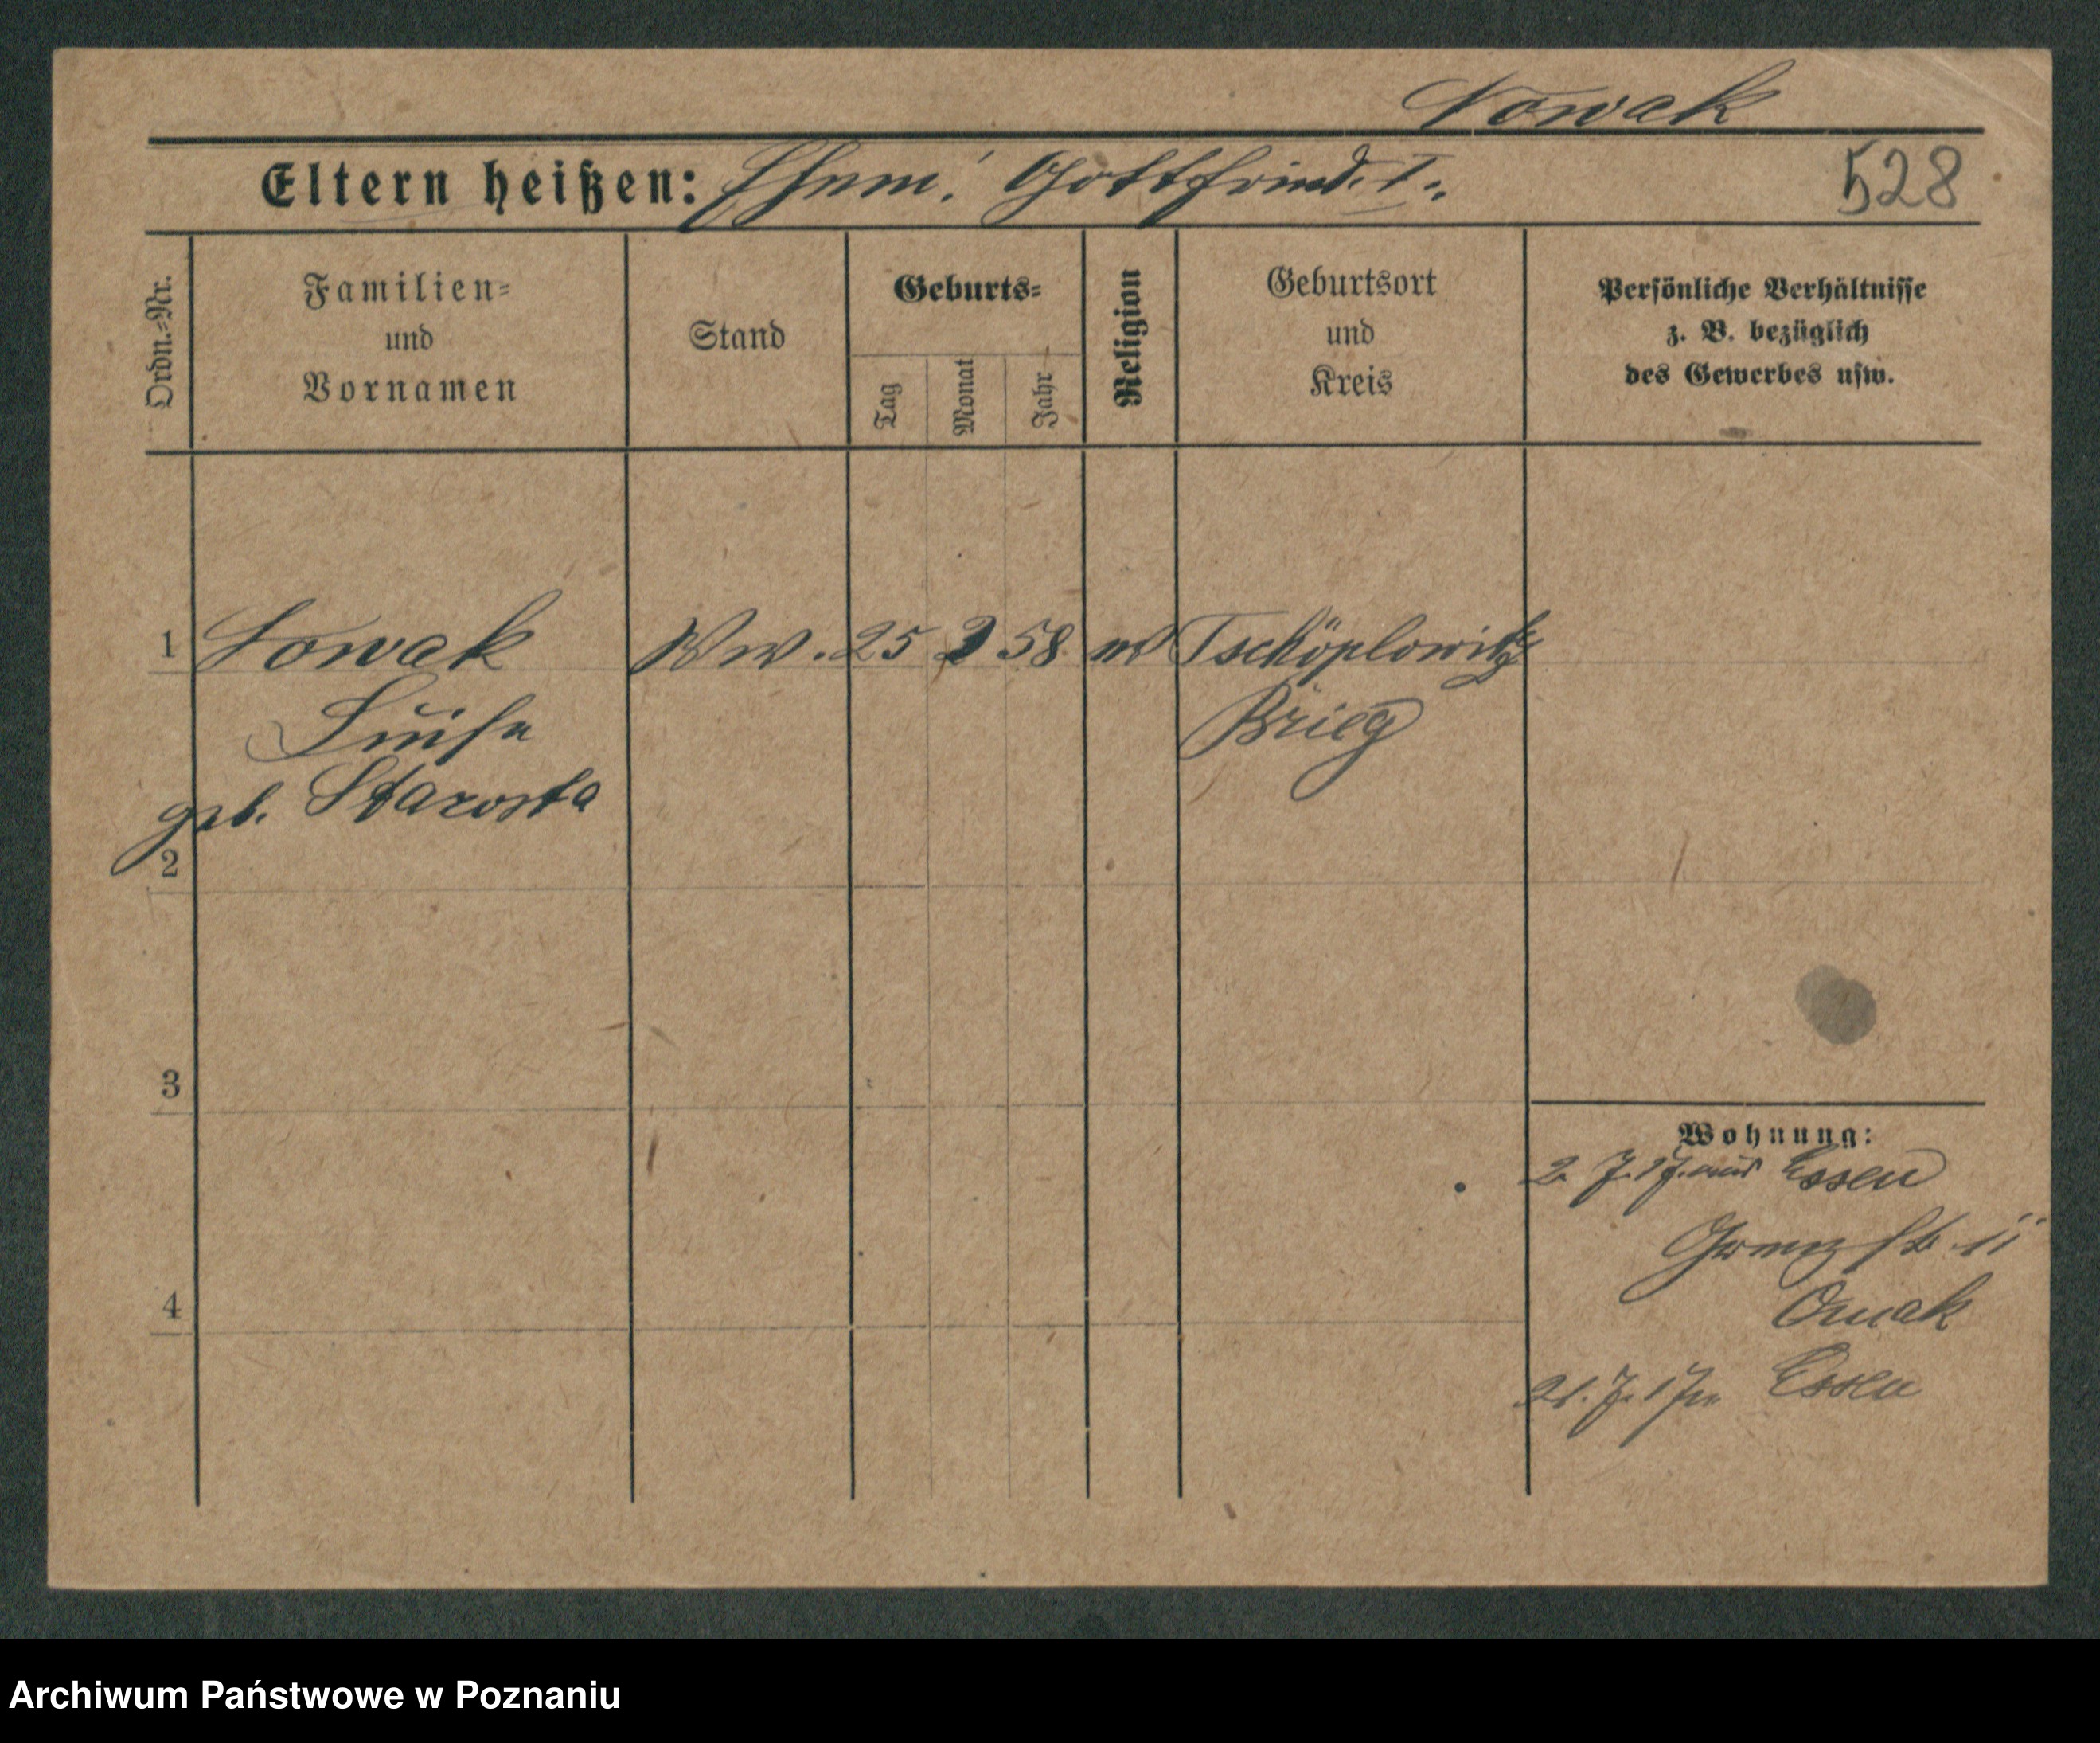 Nowak
Eltern heißen: Ehem. Gottfried †.
528
Ordn.-Nr.
Familien-
und
Vornamen
Stand
Geburts-
Tag
Monat
Jahr
Religion
Geburtsort
und
Kreis
Persönliche Verhältnisse
z. B. bezüglich
des Gewerbes usw.
1 Nowak Ww. 25 2 58 Tschöplowitz
Luise Brieg
geb. Starosta
2
3
Wohnung:
2. 7. 17. aus Essen
11
4
21. 7. 17 Essen
Archiwum Państwowe w Poznaniu